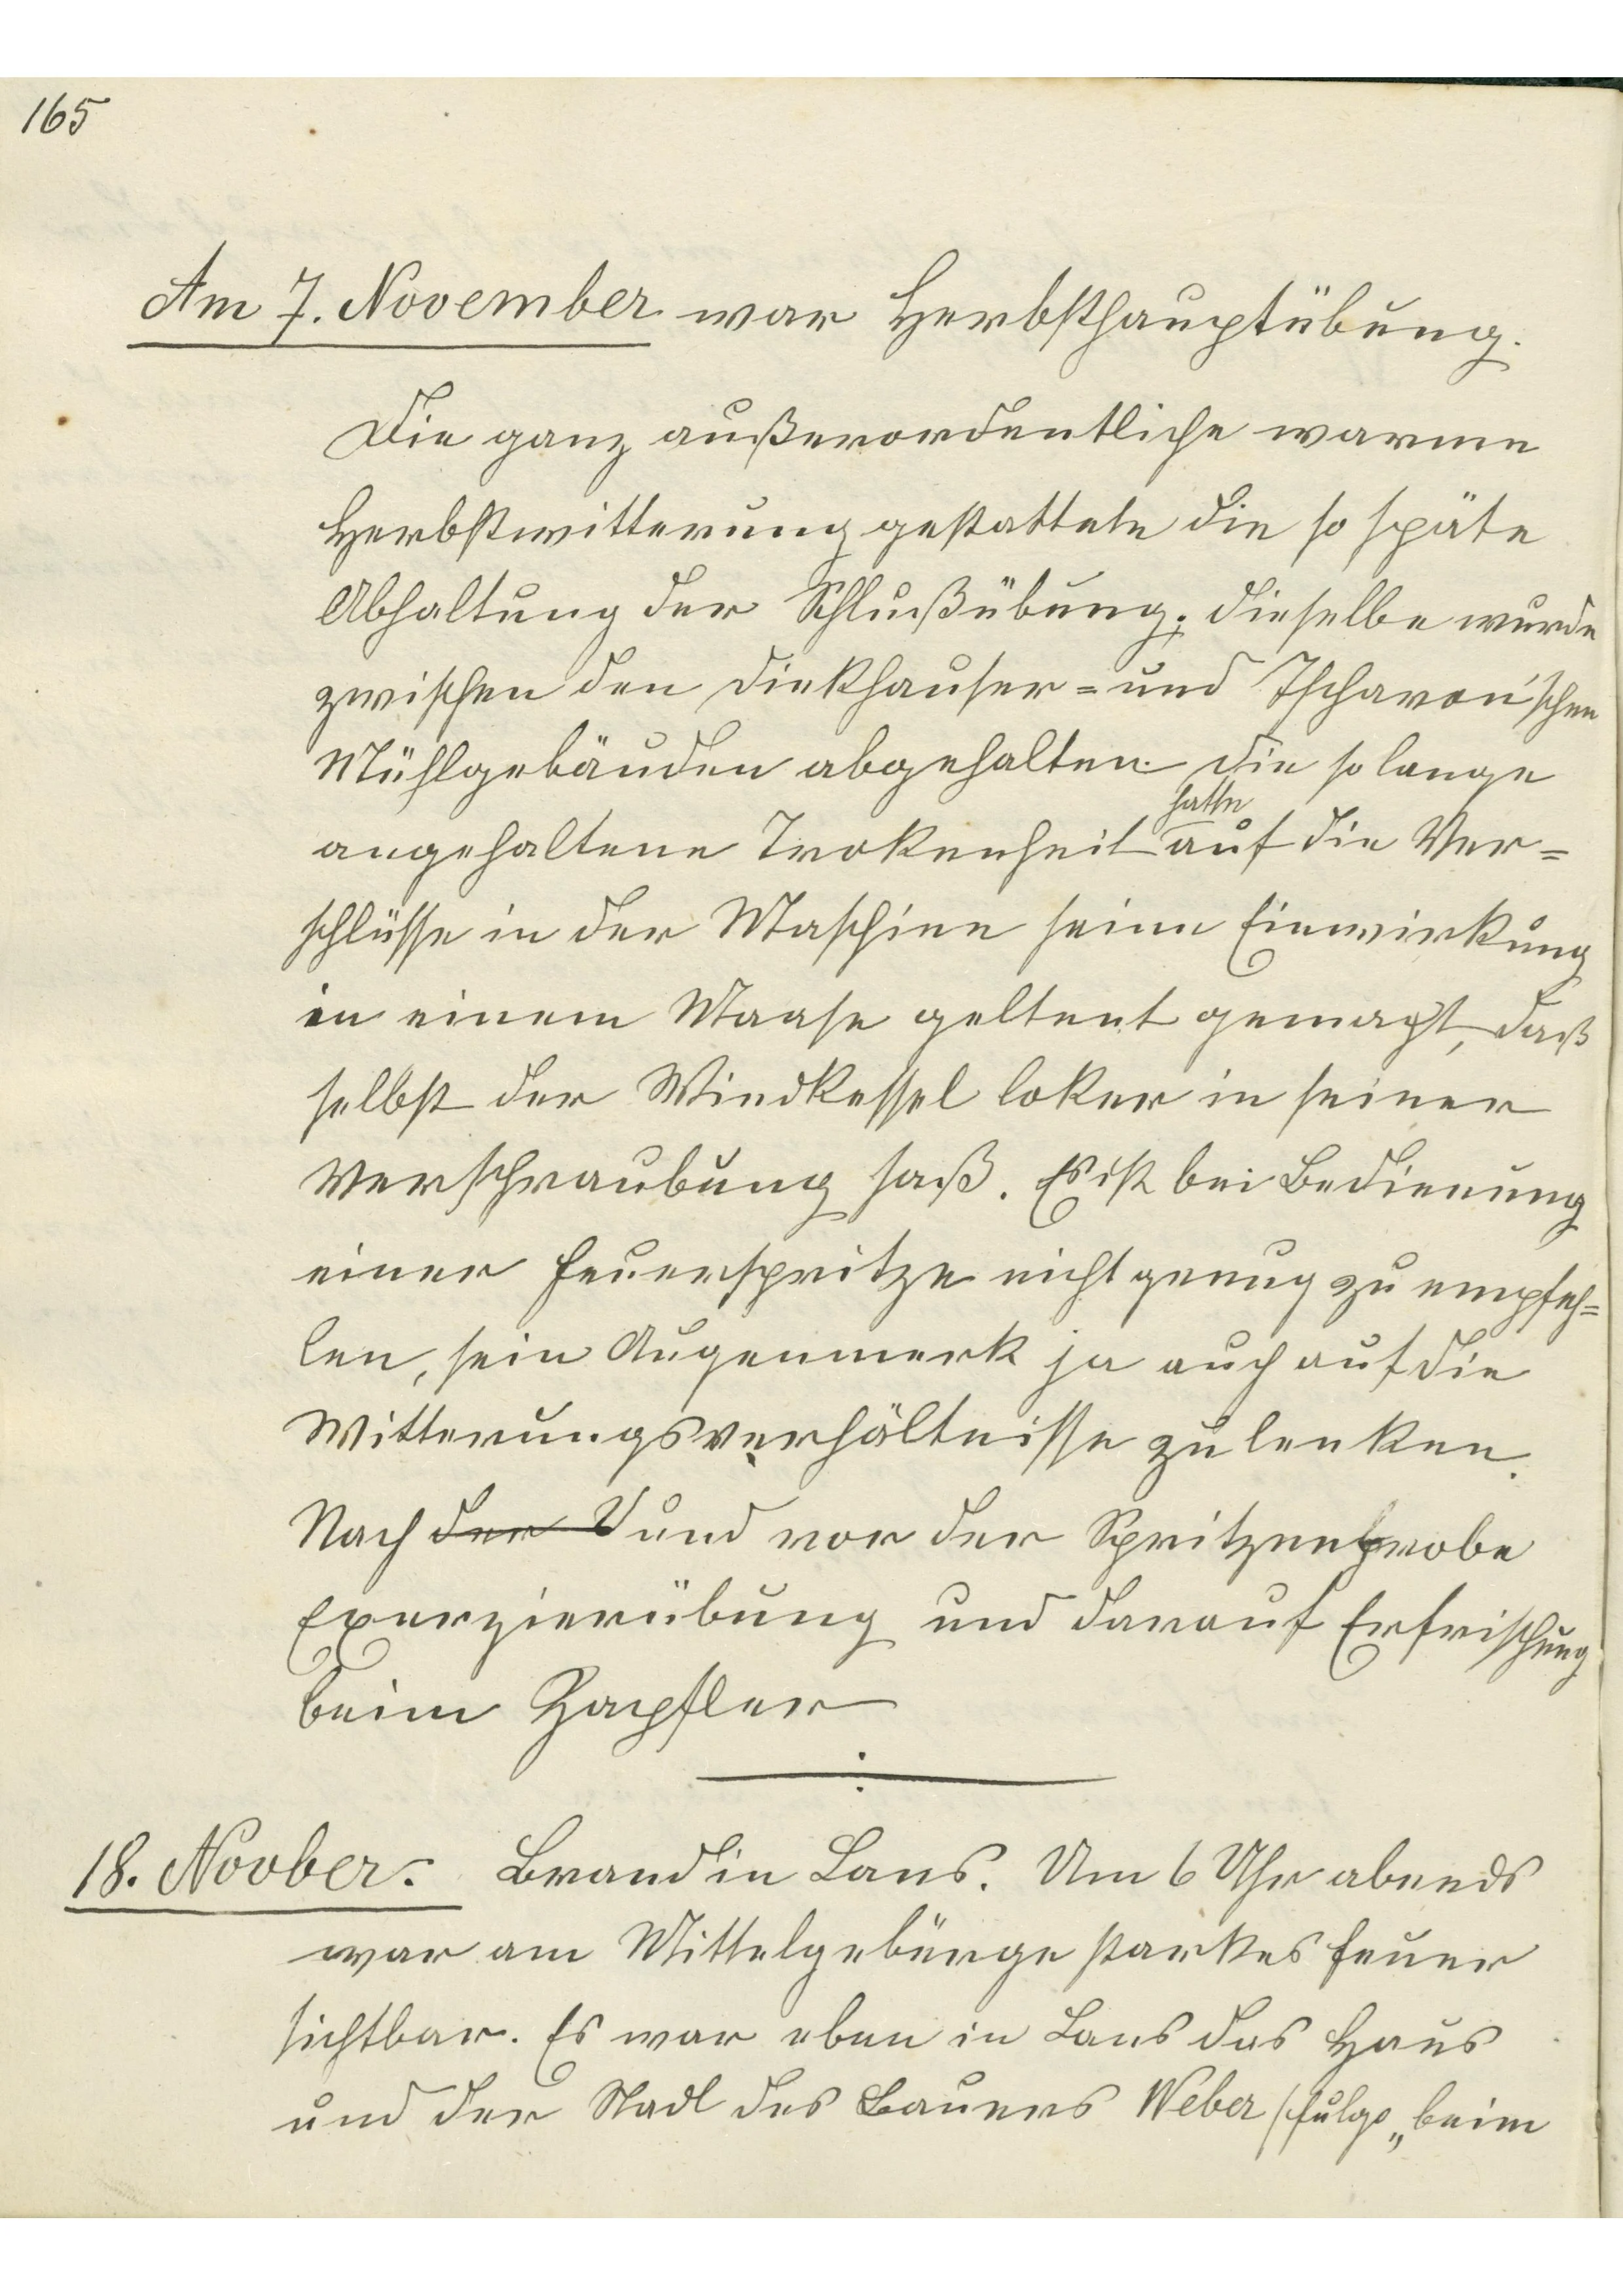 165
Am 7. November war Herbsthauptübung.
Die ganz außerordentliche warme
Herbstwitterung gestattete die so späte
Abhaltung der Schlußübung; dieselbe wurde
zwischen den Dickhauser= und Tscharon'schen
Mühlgebäuden abgehalten. Die so lange
hatte
angehaltene Trokenheit auf die Ver=
schlüsse in der Maschine seine Einwirkung
in einem Maase geltent gemacht, daß
selbst der Windkessel loker in seiner
Verschraubung saß. Es ist bei Bedienung
einer Feuerspritze nicht genug zu empfeh=
len, sein Augenmerk ja auch auf die
Witterungsverhältnisse zu lenken.
Nach der V und vor der Spritzenprobe
Exerzierübung und darauf Erfrischung
beim Hapfler
18. Novber. Brand in Lans. Um 6 Uhr abends
war am Mittelgebürge starkes Feuer
sichtbar. Es war eben in Lans das Haus
und der Stadl des Bauers Weber (fulgo „beim